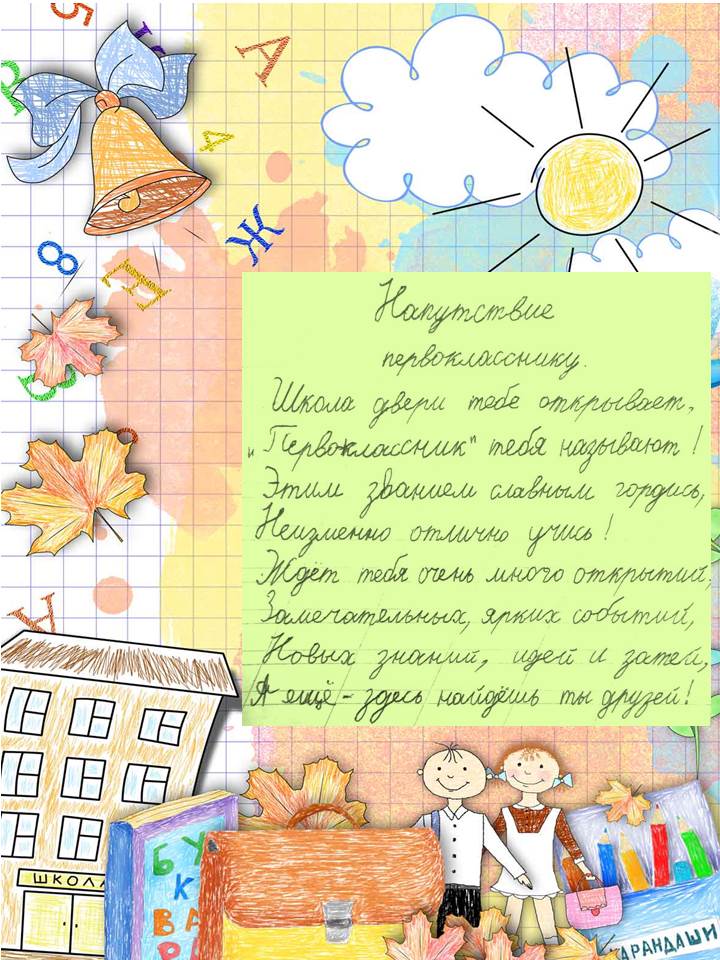 5
А
4
Ж
8
Е
Напутствие
первокласснику.
Школа двери тебе открывает,
„Первоклассник" тебя называют!
Этим званием славным гордись,
Неизменно отлично учись!
Ждёт тебя очень много открытий,
Замечательных, ярких событий,
Новых знаний, идей и затей,
А ещё - здесь найдёшь ты друзей!
А
ШКОЛА
БУ
К
ВА
РЬ
КАРАНДАШИ